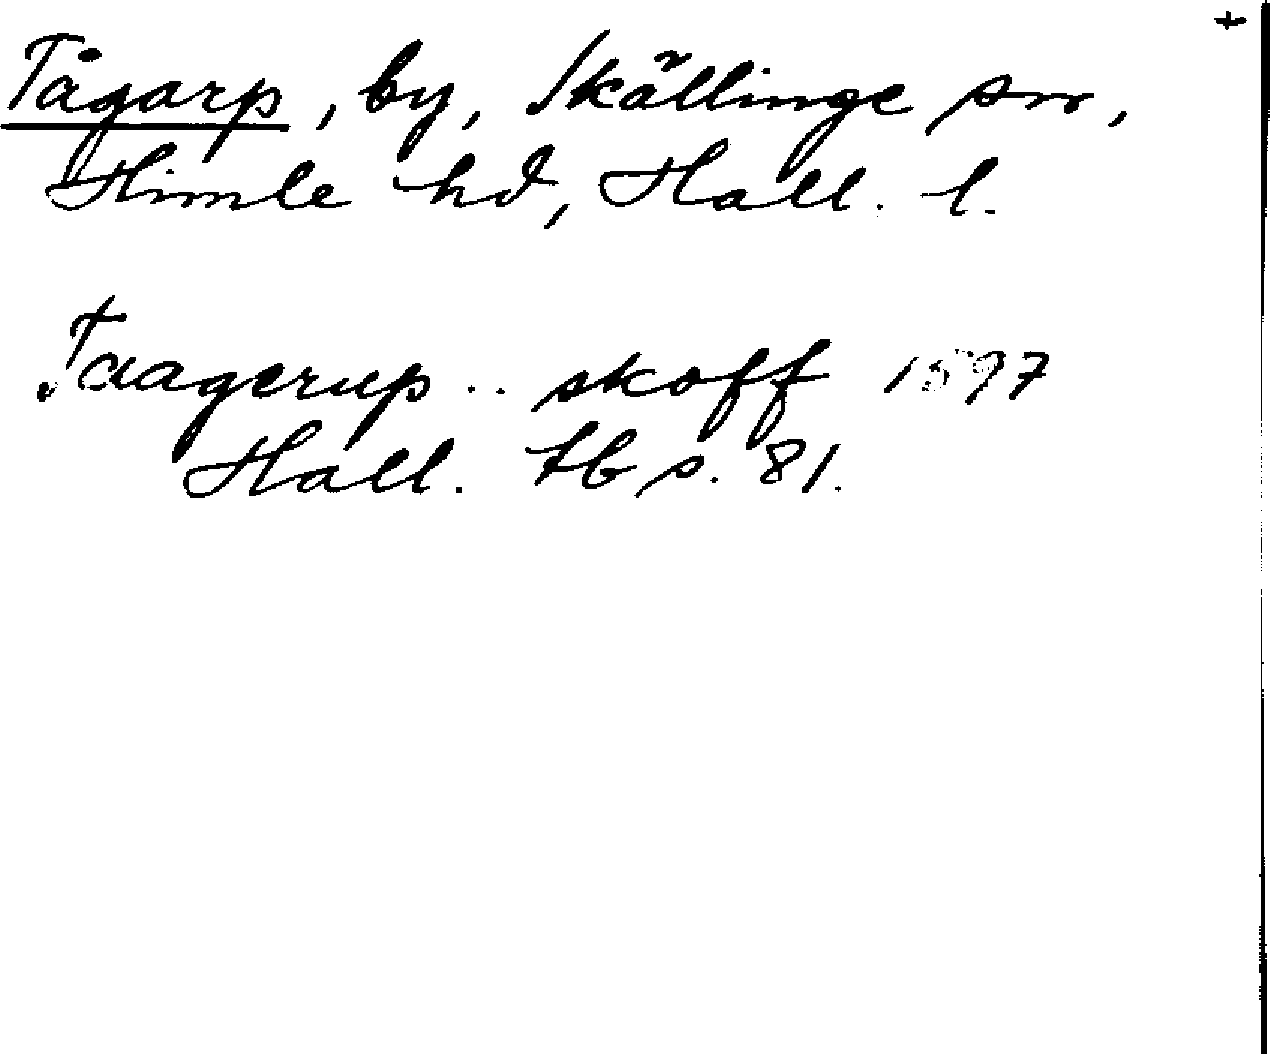 +
Tågarp, by, Skällinge sn,
Himle hd, Hall. l.
Taagerup .. skoff 1597
Hall. tb s. 81.